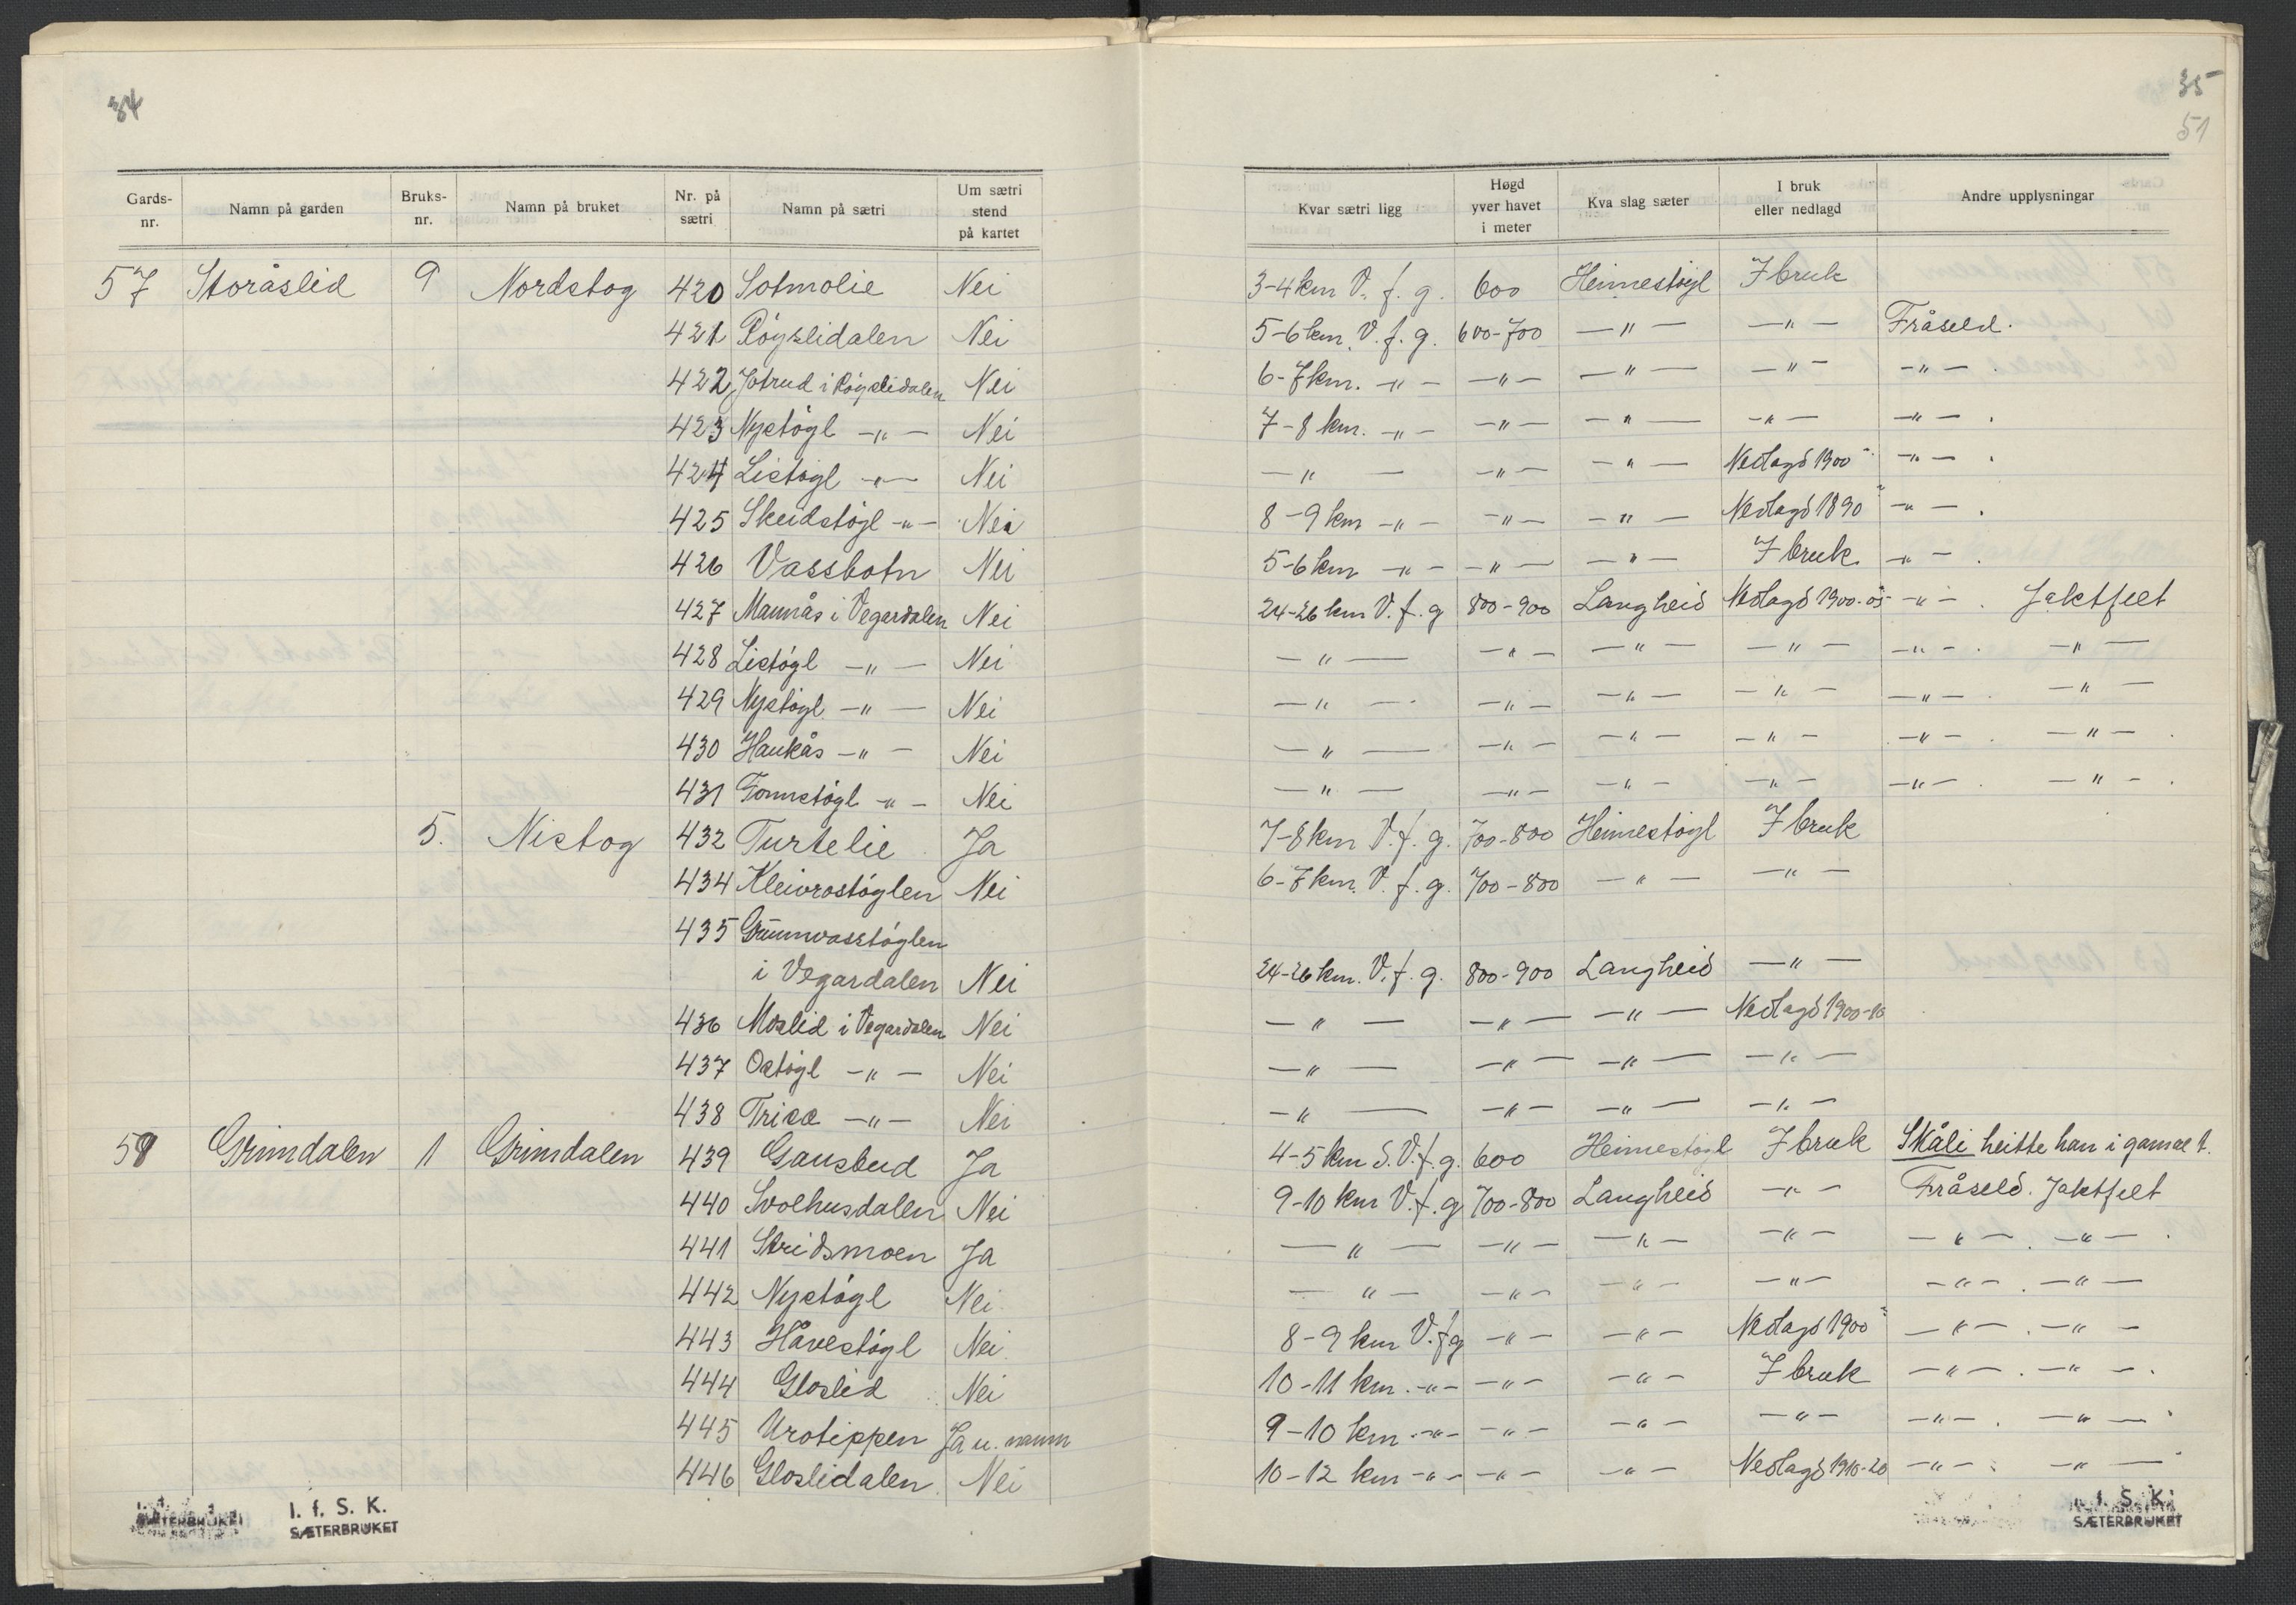 34
Gards-nr. Namn på garden Bruks-nr. Namn på bruket Nr. på sætri Namn på sætri Um sætri stend på kartet
57 Storåslid 9 Nordstog 420 Sotmolie Nei
421 Røyslidalen Nei
422 Jotrud i Røyslidalen Nei
423 Nystøgl -"- Nei
424 Listøgl -"- Nei
425 Skeidstøgl -"- Nei
426 Vassbotn Nei
427 Mannås i Vegardalen Nei
428 Listøgl -"- Nei
429 Nystøgl -"- Nei
430 Haukås -"- Nei
431 Fonnstøgl -"- Nei
5. Nistog 432 Turtelie Ja
434 Kleivrostøglen Nei
435 Grunnvasstøglen
i Vegardalen Nei
436 Moslid i Vegardalen Nei
437 Ostøgl -"- Nei
438 -"- Nei
58 Grimdalen 1 Grimdalen 439 Gausbud Ja
440 Svolhusdalen Nei
441 Stridsmoen Ja
442 Nystøgl Nei
443 Håvestøgl Nei
444 Gloslid Nei
445 Urotippen Ja u. namn
446 Gloslidalen Nei
I. f. S. K.
SÆTERBRUKET
35
51
Kvar sætri ligg Høgd yver havet i meter Kva slag sæter I bruk eller nedlagd Andre upplysningar
3-4 km V. f. g. 600 Heimestøgl I bruk
5-6 km. V. f. g. 600-700 -"- -"- Fråseld.
6-7 km. -"- -"- -"- -"- -"- .
7-8 km. -"- -"- -"- -"- -"- .
-"- -"- -"- Nedlagd 1900 -"- .
8-9 km -"- -"- -"- Nedlagd 1890 -"- .
5-6 km -"- -"- -"- I bruk -"- .
24-26 km V. f. g 800-900 Langheid Nedlagd 1900-05 -"- . Jaktfelt
-"- -"- -"- -"- -"- . -"-
-"- -"- -"- -"- -"- . -"-
-"- -"- -"- -"- -"- . -"- .
-"- -"- -"- -"- -"- . -"- .
7-8 km V. f. g. 700-800 Heimestøgl I bruk
6-7 km. V. f. g. 700-800 -"- -"-
24-26 km. V. f. g. 800-900 Langheid -"-
-"- -"- -"- Nedlagd 1900-10
-"- -"- -"- -"-
-"- -"- -"- -"-
4-5 km S.V. f. g. 600 Heimestøgl I bruk Skåli heitte han i gamal t.
9-10 km V. f. g 700-800 Langheid -"- Fråseld. Jaktfelt
-"- -"- -"- -"- -"- . -"- .
-"- -"- -"- -"- -"- . -"-
8-9 km V. f g -"- -"- Nedlagd 1900 -"- . -"-
10-11 km. -"- -"- -"- I bruk -"- . -"- .
9-10 km. -"- -"- -"- -"- -"- . -"-
10-12 km -"- -"- -"- Nedlagd 1910-20 -"- . -"-
I. f. S. K.
SÆTERBRUKET